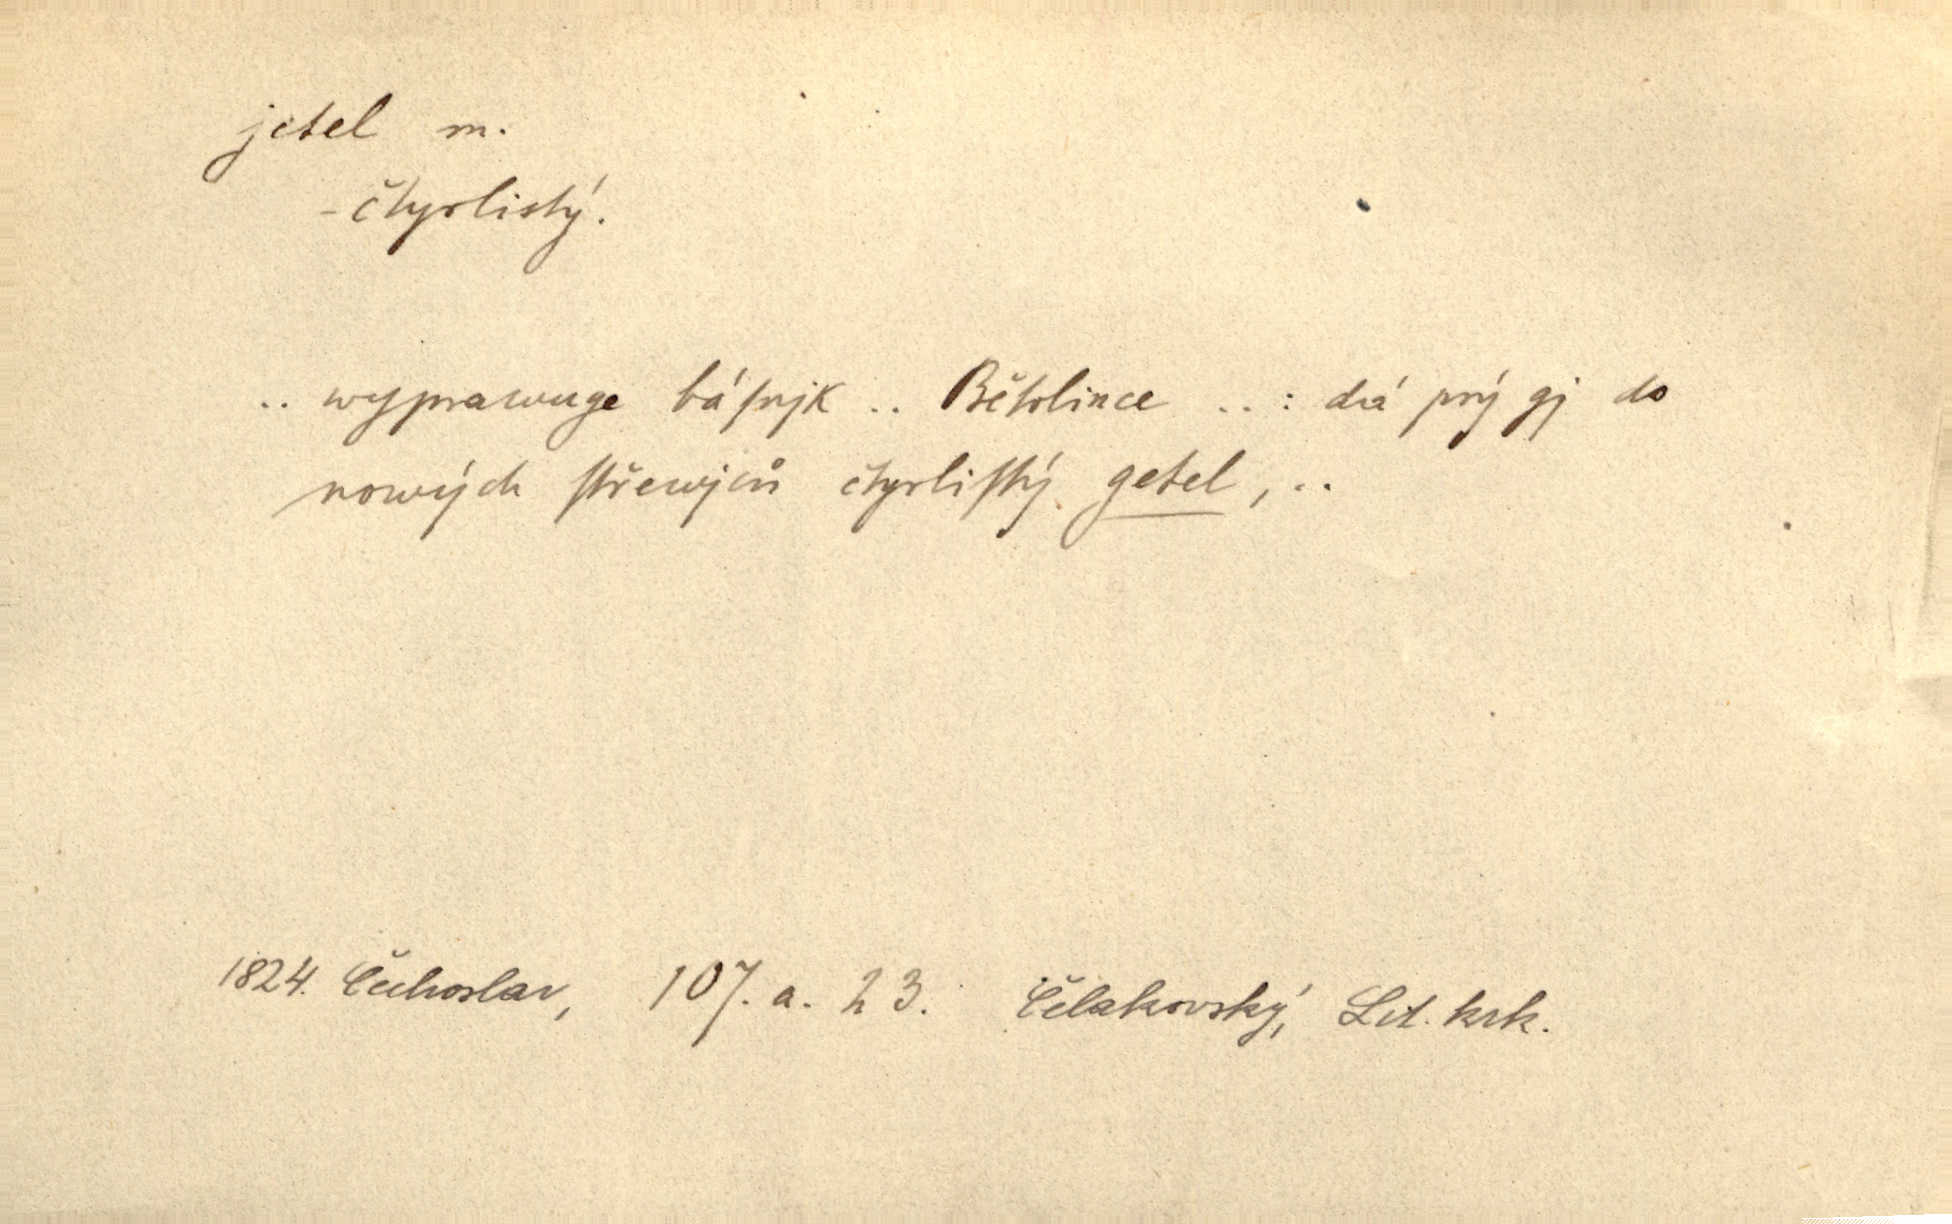 jetel m.
- čtyrlistý.
.. wyprawuge báſnjk .. Bětolince .. : dá prý gj do
nowých ſtřewjců čtyrliſtý getel, ..
1824. Čechoslav, 107. a. 23. Čelakovský, Lit. krk.